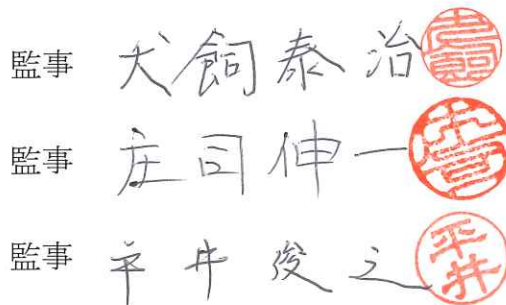 監事 犬飼泰治
監事 庄司伸一
監事 平井俊之 平井